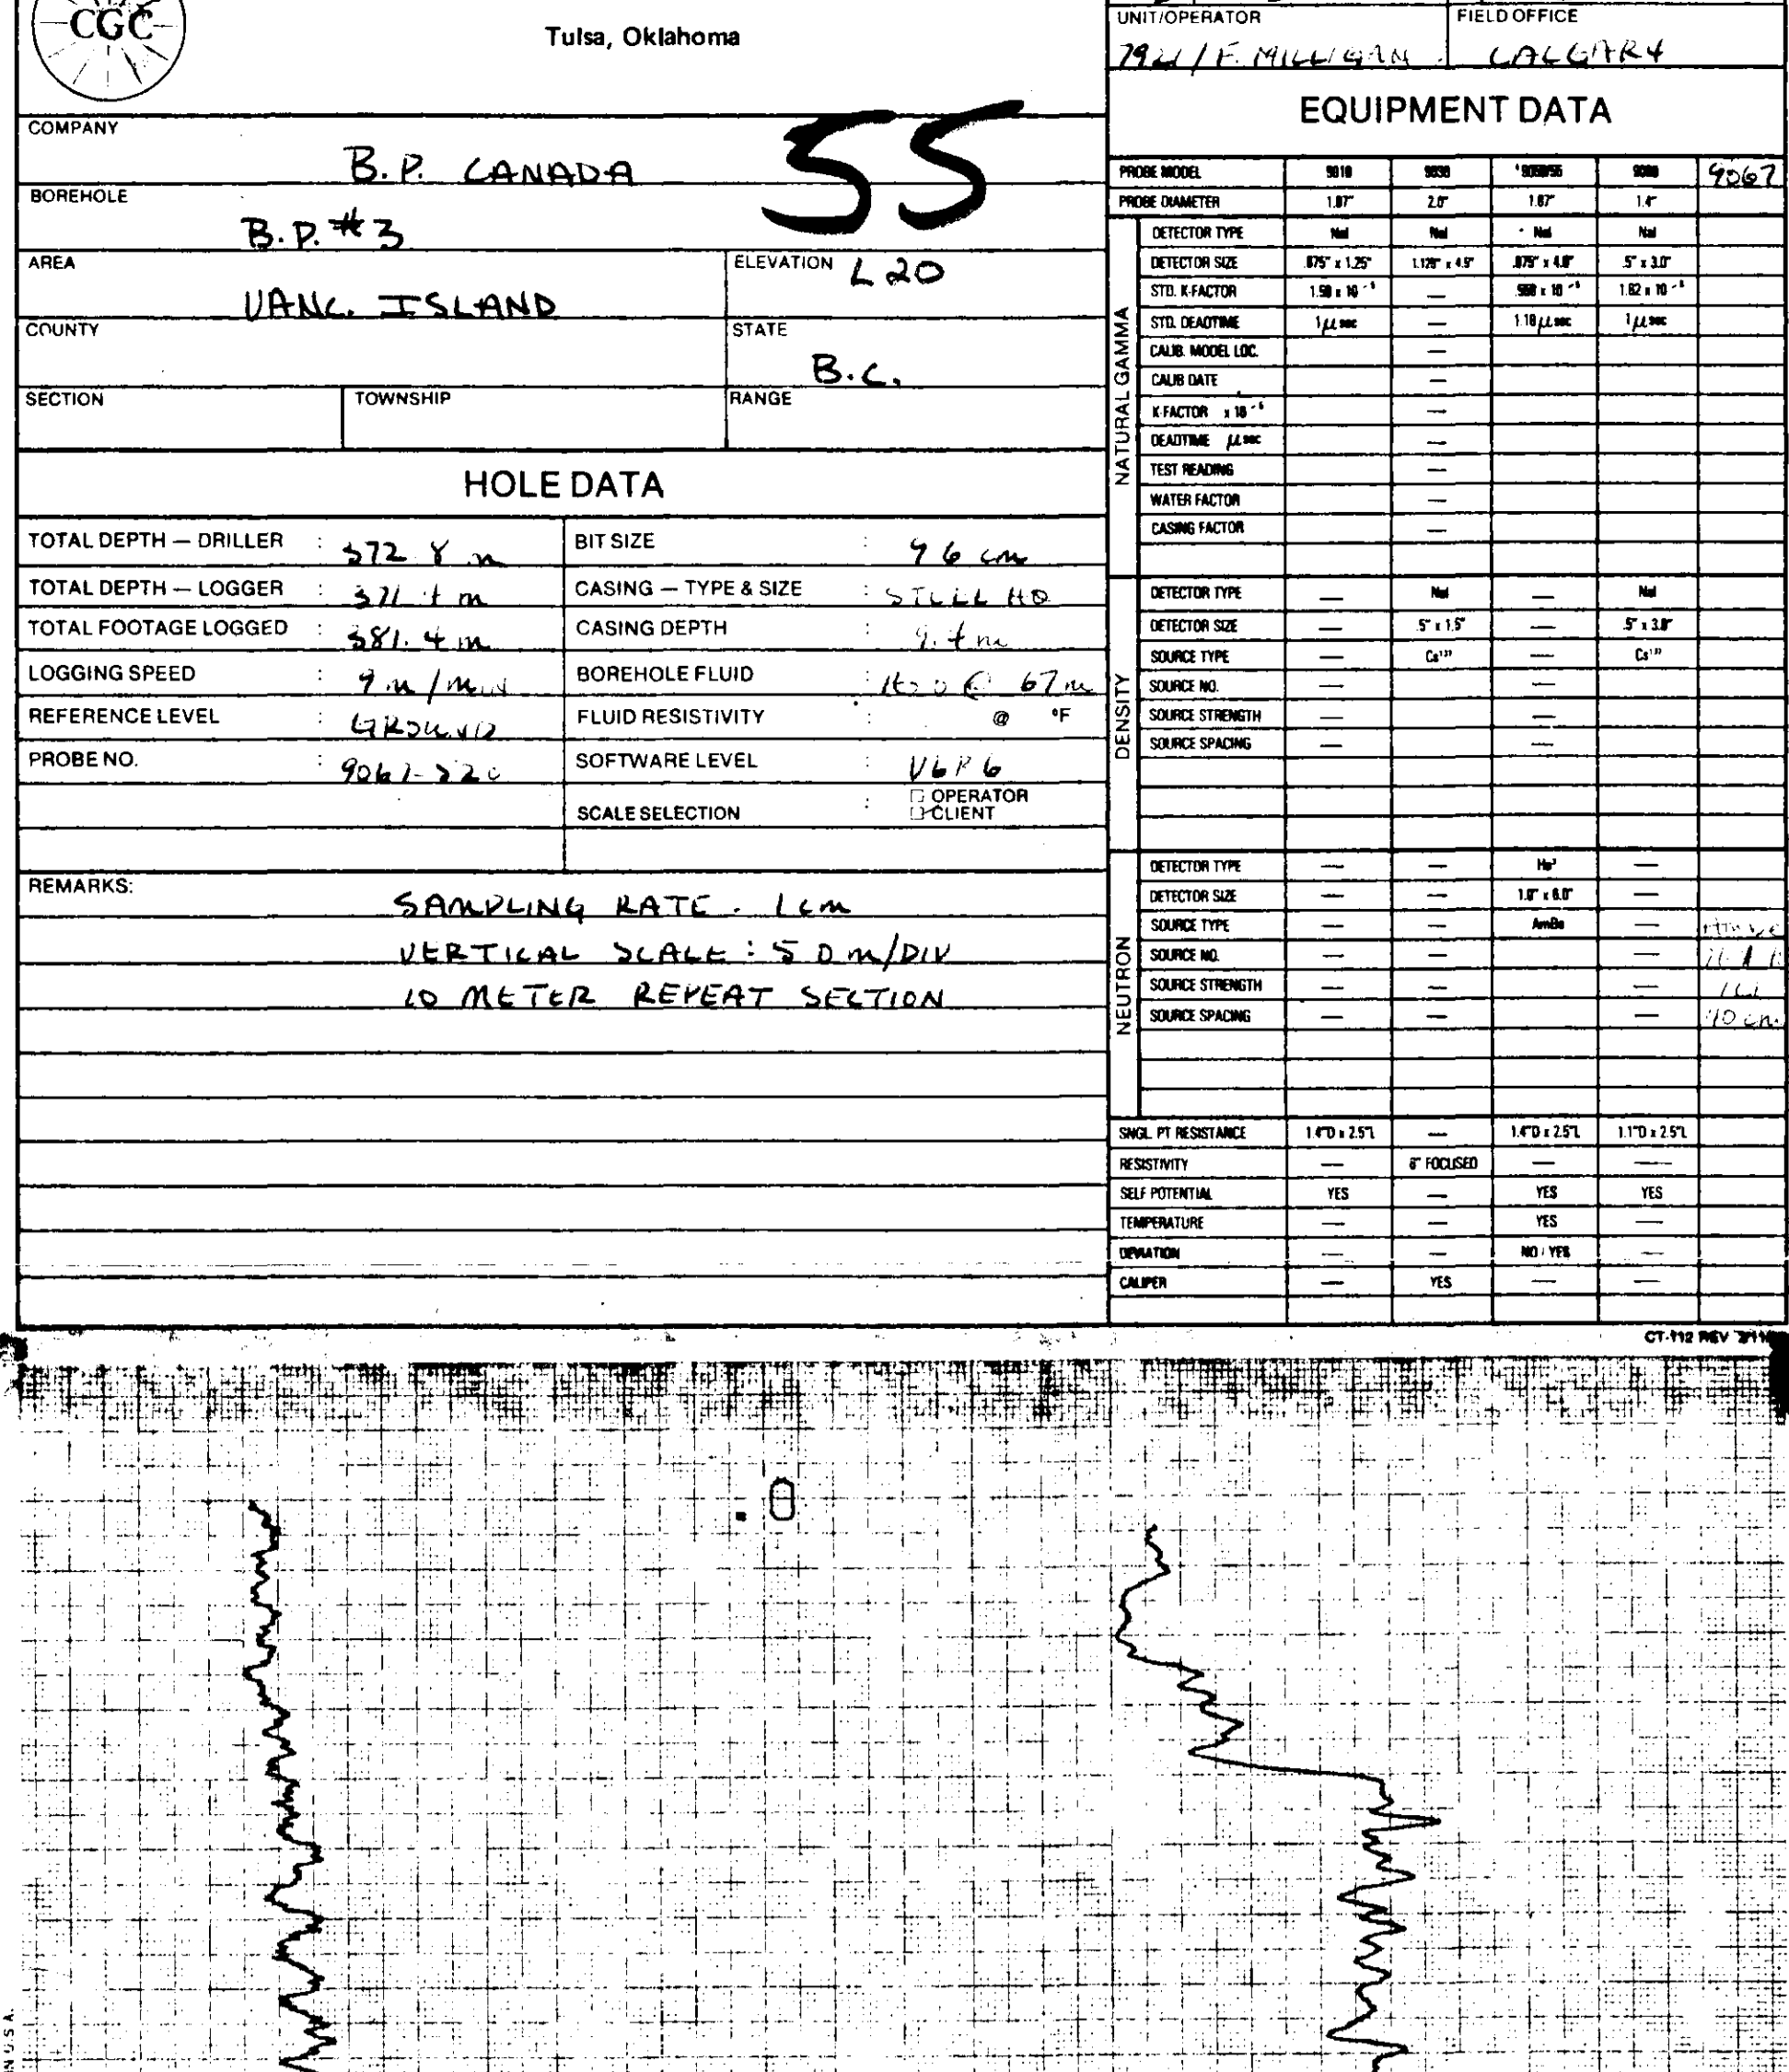 CGC
Tulsa, Oklahoma
UNIT/OPERATOR FIELD OFFICE
F. MILLIGAN CALGARY
COMPANY
B.P. CANADA
55
BOREHOLE
B.P. #3
AREA ELEVATION L20
VANC. ISLAND
COUNTY STATE
B.C.
SECTION TOWNSHIP RANGE
HOLE DATA
TOTAL DEPTH — DRILLER : BIT SIZE : 96 cm
TOTAL DEPTH — LOGGER : CASING — TYPE & SIZE :
TOTAL FOOTAGE LOGGED : 381.4 m CASING DEPTH : 9.4 m
LOGGING SPEED : 9 m/min BOREHOLE FLUID : H2O @ 67 m
REFERENCE LEVEL : GROUND FLUID RESISTIVITY : @ °F
PROBE NO. : SOFTWARE LEVEL : V6R6
SCALE SELECTION : OPERATOR
CLIENT
REMARKS:
SAMPLING RATE. 1cm
VERTICAL SCALE: 5.0 m/DIV
10 METER REPEAT SECTION
EQUIPMENT DATA
PROBE MODEL 9010 9030 9080 9067
PROBE DIAMETER 1.87" 2.0" 1.87" 1.4"
NATURAL GAMMA
DETECTOR TYPE NaI NaI NaI NaI
DETECTOR SIZE .875" x 1.25" 1.128" x 4.5" .875" x 4.8" .5" x 3.0"
STD. K-FACTOR —
STD. DEADTIME 1 μ sec — 1.18 μ sec 1 μ sec
CALIB. MODEL LOC. —
CALIB DATE —
K-FACTOR —
DEADTIME μ sec —
TEST READING —
WATER FACTOR —
CASING FACTOR —
DENSITY
DETECTOR TYPE — NaI — NaI
DETECTOR SIZE — .5" x 1.5" — .5" x 3.8"
SOURCE TYPE — Cs¹³⁷ — Cs¹³⁷
SOURCE NO. — —
SOURCE STRENGTH — —
SOURCE SPACING — —
NEUTRON
DETECTOR TYPE — — He³ —
DETECTOR SIZE — — 1.0" x 6.0" —
SOURCE TYPE — — AmBe —
SOURCE NO. — — —
SOURCE STRENGTH — — —
SOURCE SPACING — — — 40 cm
SNGL. PT RESISTANCE 1.4"D x 2.5"L — 1.4"D x 2.5"L 1.1"D x 2.5"L
RESISTIVITY — 6" FOCUSED — —
SELF POTENTIAL YES — YES YES
TEMPERATURE — — YES —
DEVIATION — — NO / YES —
CALIPER — YES — —
CT-112 REV
. 0